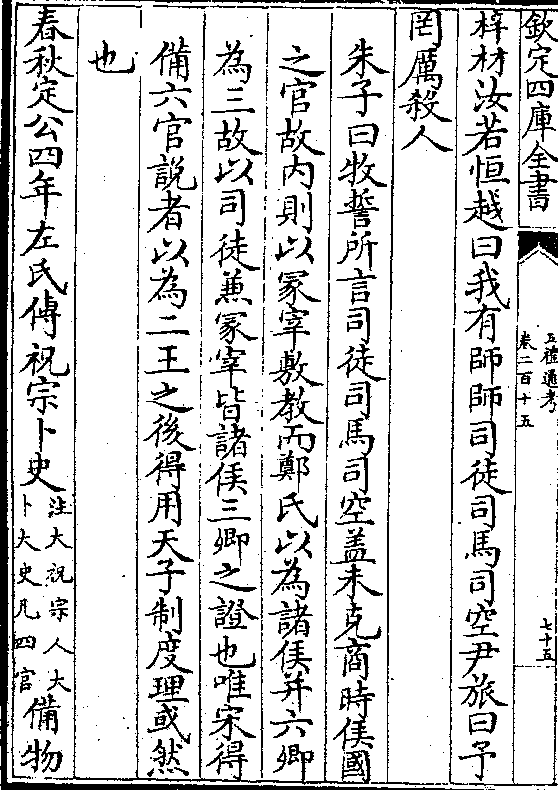 欽定四庫全書
五禮通考
卷二百十五
七十五
梓材汝若恒越曰我有師師司徒司馬司空尹旅曰予
罔厲殺人
朱子曰牧誓所言司徒司馬司空蓋未克商時侯國
之官故内則以冢宰敷教而鄭氏以為諸侯并六卿
為三故以司徒兼冢宰皆諸侯三卿之證也唯宋得
備六官説者以為二王之後得用天子制度理或然
也
春秋定公四年左氏傳祝宗卜史注大祝宗人大卜大史凡四官備物